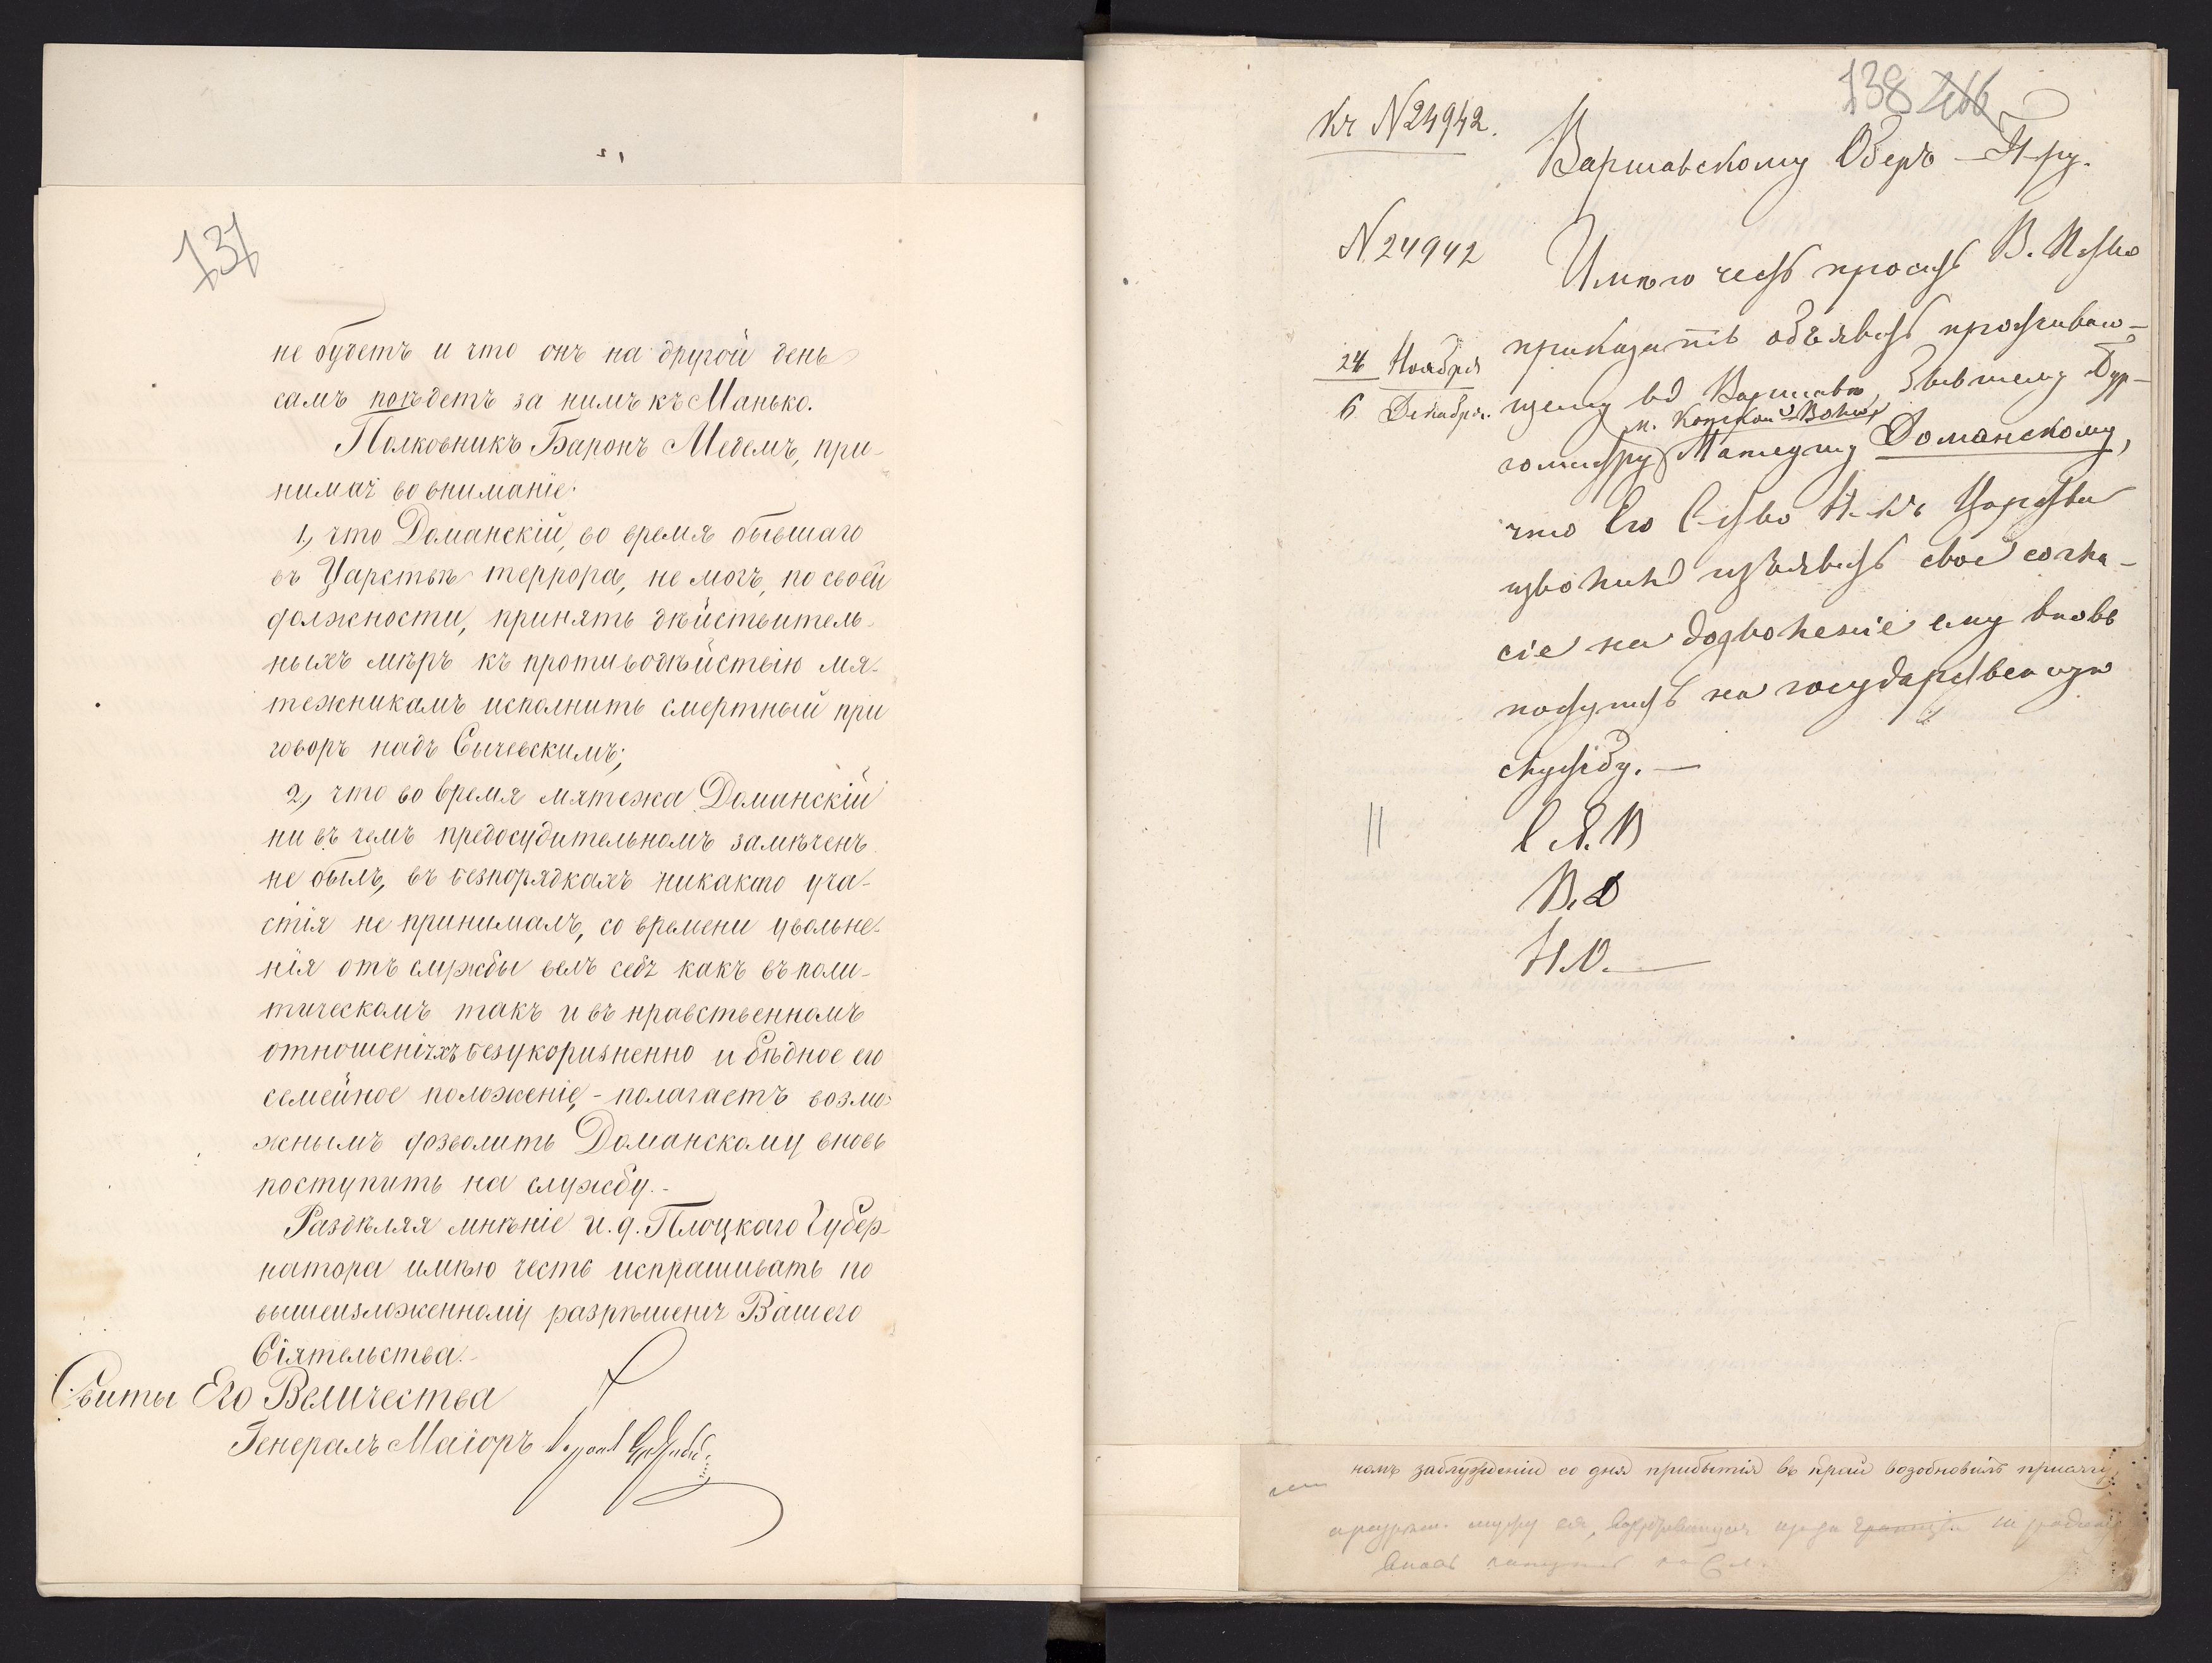 131
не будетъ и что онъ на другой день
самъ поѣдетъ за нимъ къ Манько.
Полковникъ Баронъ Медемъ, при-
нимая во вниманіе:
1, что Доманскій, во время бывшаго
въ Царствѣ террора, не могъ, по своей
должности, принять дѣйствитель-
ныхъ мѣръ къ противодѣйствію мя-
тежникамъ исполнить смертный при
говоръ надъ Сычевскимъ;
2, что во время мятежа Доманскій
ни въ чемъ предосудительномъ замѣченъ
не былъ, въ безпорядкахъ никакого уча-
стія не принималъ, со времени увольне-
нія отъ службы велъ себя какъ въ поли-
тическомъ такъ и въ нравственномъ
отношеніяхъ безукоризненно и бѣдное его
семейное положеніе, - полагаетъ возмо-
жнымъ дозволить Доманскому вновь
поступить на службу.-
Раздѣляя мнѣніе и. д. Плоцкаго Губер-
натора имѣю честь испрашивать по
вышеизложенному разрѣшенія Вашего
Сіятельства.-
Свиты Его Величества
Генералъ Маіоръ
138
Кч №24942.
Варшавскому Оберъ-П-ру.
№ 24942
Имѣю честь просить В.
приказать объявить проживаю-
24 Ноября
6 Декабря.
щему въ Варшавѣ, бывшему Бур-
п.
гомистру Матеушу Доманскому,
что Его С-ство Н-къ Царства
изволилъ изъявить свое согла-
сіе на дозволеніе ему вновь
поступить на государственную
службу.—
В.Д
Н.О.—
номъ заблужденіи со дня прибытія въ край возобновилъ присягу
мужу ея,